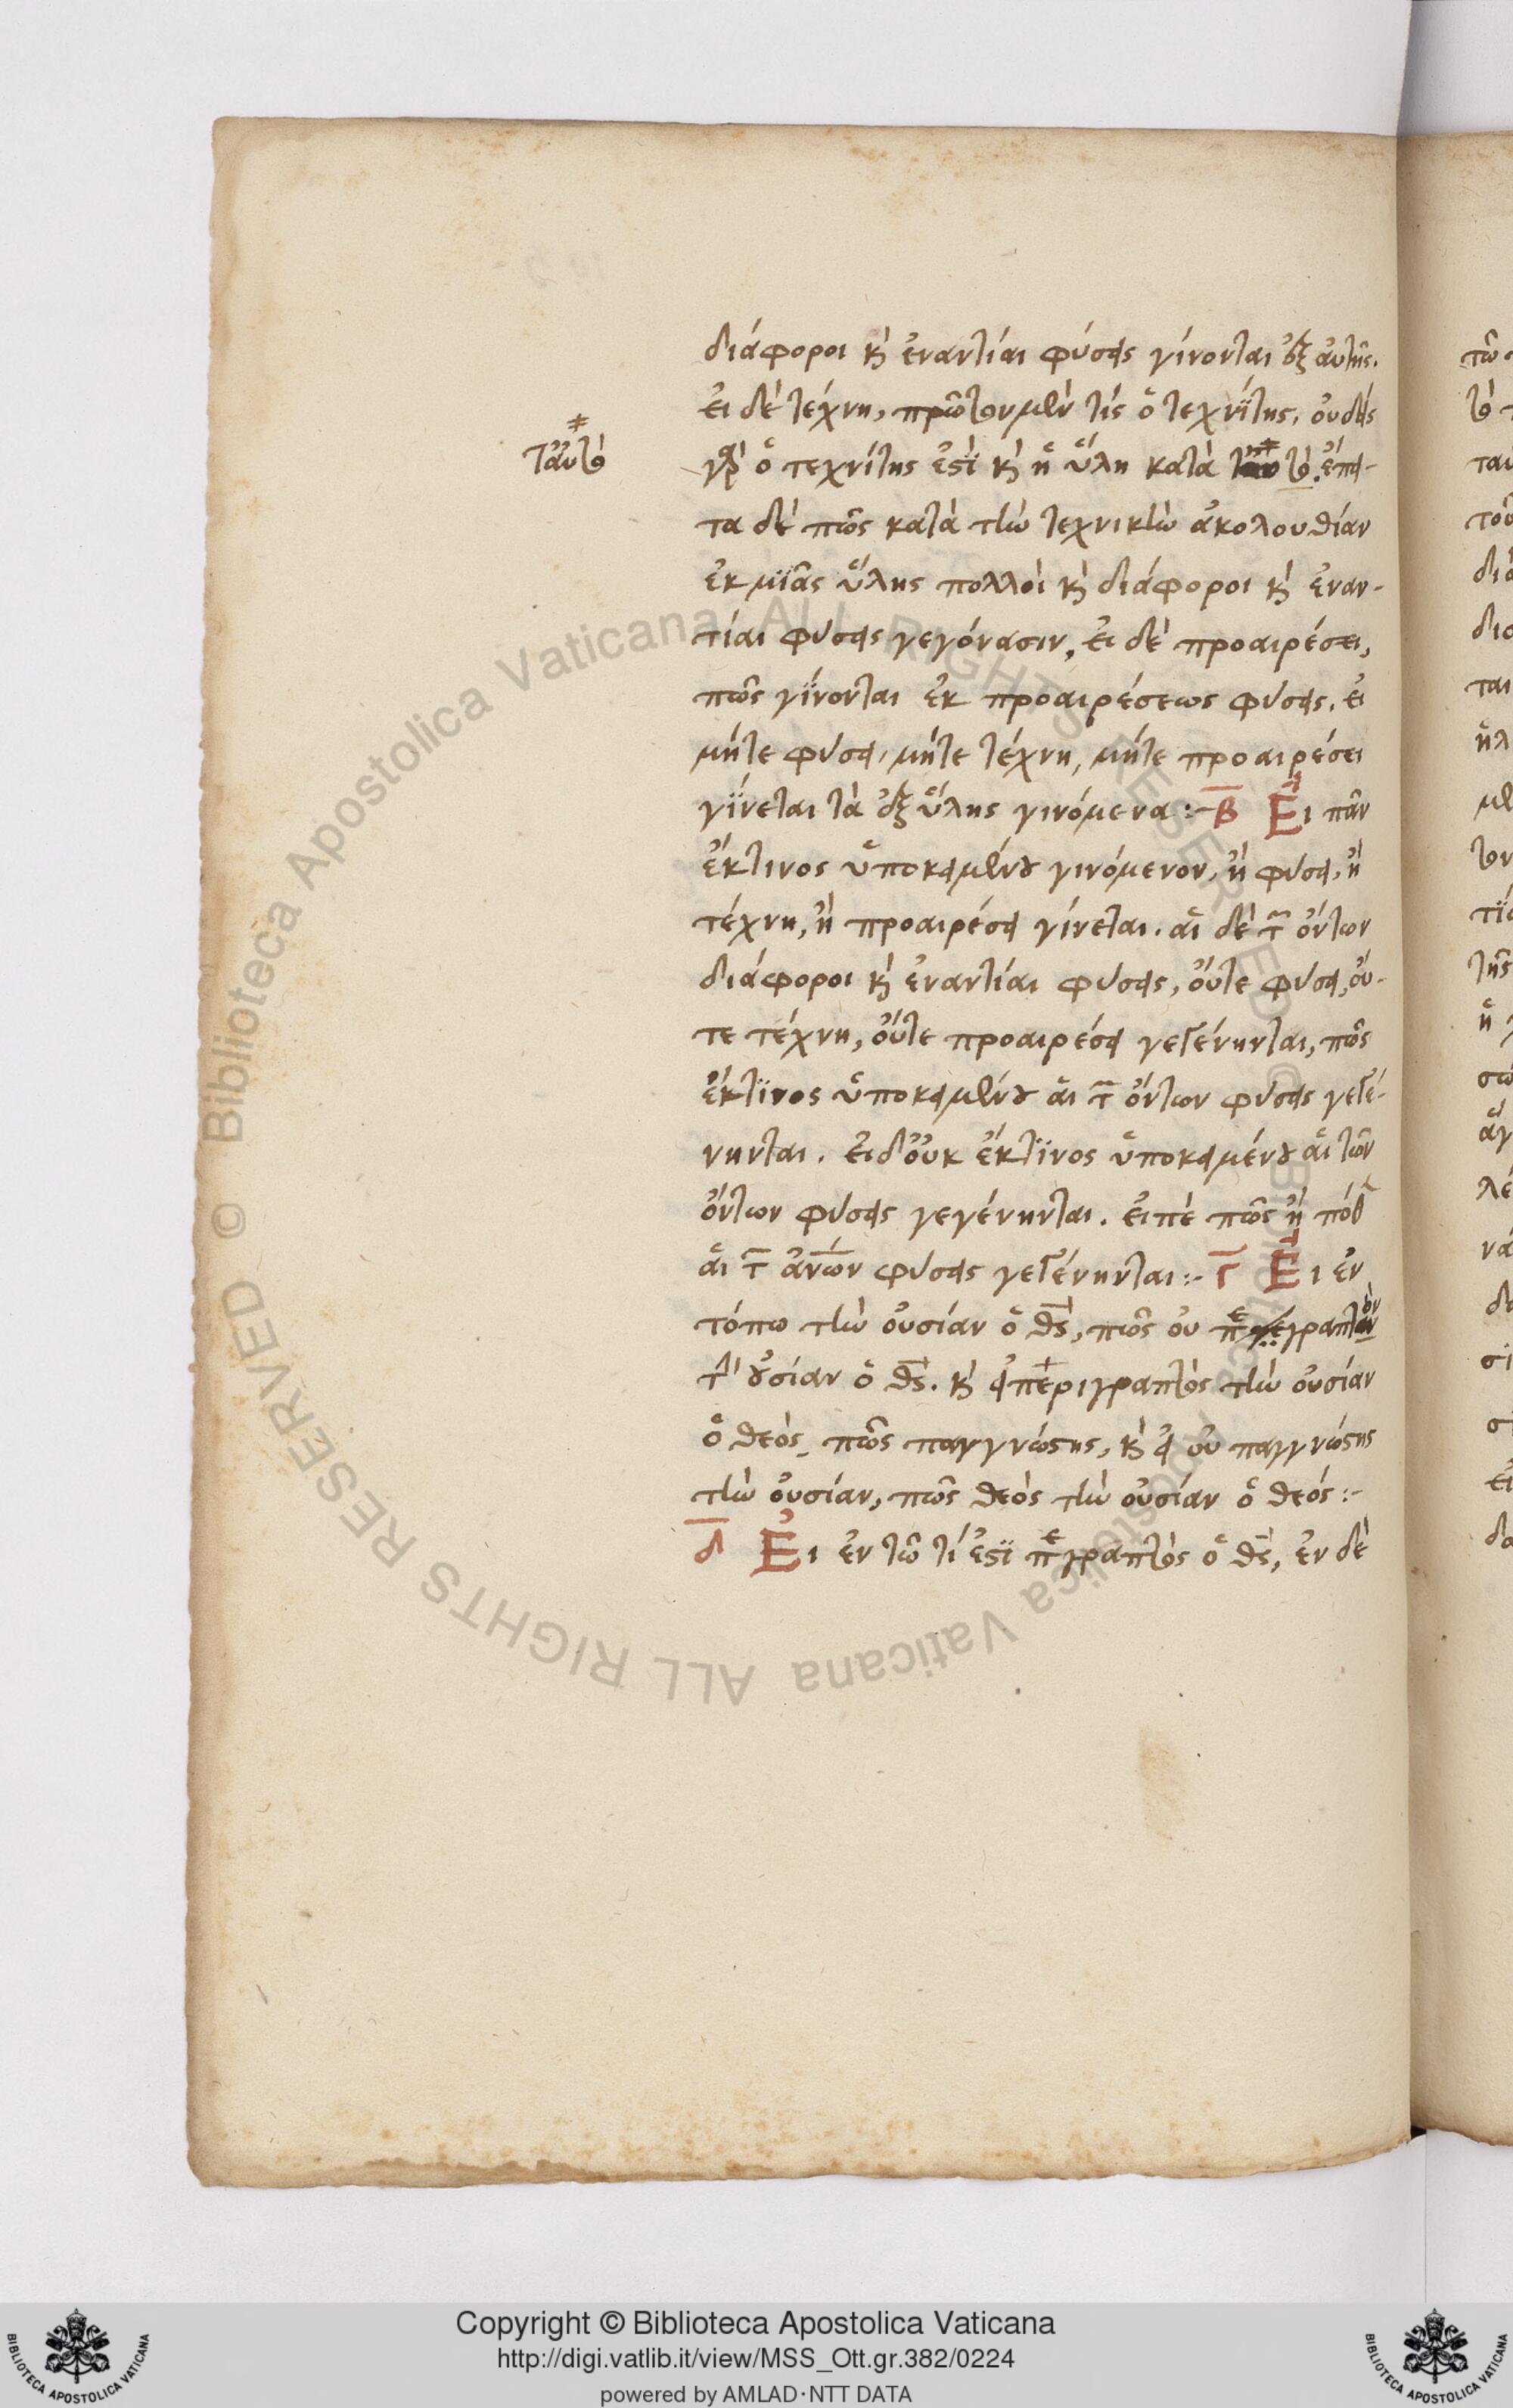 διάφοροι κ̀ ἐναντίαι φύσεις γίνονται ἐξ αὐτῆς.
ἐι δὲ τέχνη, πρῶτον μὲν τίς ὁ τεχνΐτης, οὐδεὶς
ταὐτὸ
γὰρ ὁ τεχνίτης ἐστὶ κ̀ ἡ ὕλη κατὰ ταυτὸ. ἔπει-
τα δὲ πῶς κατὰ τὴν τεχνικὴν ἀκολουθίαν
ἐκ μϊᾶς ὕλης πολλοὶ κ̀ διάφοροι κ̀ ἐναν-
τίαι φύσεις γεγόνασιν, ἐι δὲ προαιρέσει,
πῶς γΐνονται ἐκ προαιρέσεως φύσεις. ἐι
μήτε φύσει, μήτε τέχνη, μήτε προαιρέσει
γΐνεται τὰ ἐξ ὕλης γινόμενα :- Β Εἰ πᾶν
ἔκτινος ὑποκειμένου γινόμενον, ἢ φύσει, ἢ
τέχνη, ἢ προαιρέσει γίνεται. αἱ δὲ τ͂ ὄντων
διάφοροι κ̀ ἐναντίαι φύσεις, οὔτε φύσει, οὔ-
τε τέχνη, οὔτε προαιρέσει γεγένηνται, πῶς
ἔκτϊνος ὑποκειμένου ἁι τ͂ ὄντων φύσεις γεγέ-
νηνται. Ἐι δ'οὐκ ἔκτϊνος ὑποκειμένου αἱ τῶν
ὄντων φύσεις γεγένηνται. ἐιπὲ πῶς ἢ πόθ
ἁι τ͂ ἀν̅ω̅ν φύσεις γεγένηνται :- Γ Εἰ ἐν
τόπω τὴν οὐσίαν ὁ θ̅ς̅, πῶς οὐ περιγραπτὸν
τ̀ οὐσίαν ὁ θ̅ς̅. κ̀ εἰ περιγραπτὸς τὴν οὐσίαν
ὁ θεὸς, πῶς παγγνώστης, κ̀ εἰ οὐ παγγνώστης
τὴν οὐσίαν, πῶς θεὸς τὴν οὐσίαν ὁ θεός :-
Δ Εἰ ἐν τῶ τί ἐστὶ περιγραπτὸς ὁ θ̅ς̅, ἐν δὲ
Copyright © Biblioteca Apostolica Vaticana
http://digi.vatlib.it/view/MSS_Ott.gr.382/0224
powered by AMLAD·NTT DATA
© Biblioteca Apostolica Vaticana ALL RIGHTS RESERVED
© Biblioteca Apostolica Vaticana ALL RIGHTS RESERVED
BIBLIOTECA APOSTOLICA VATICANA
BIBLIOTECA APOSTOLICA VATICANA